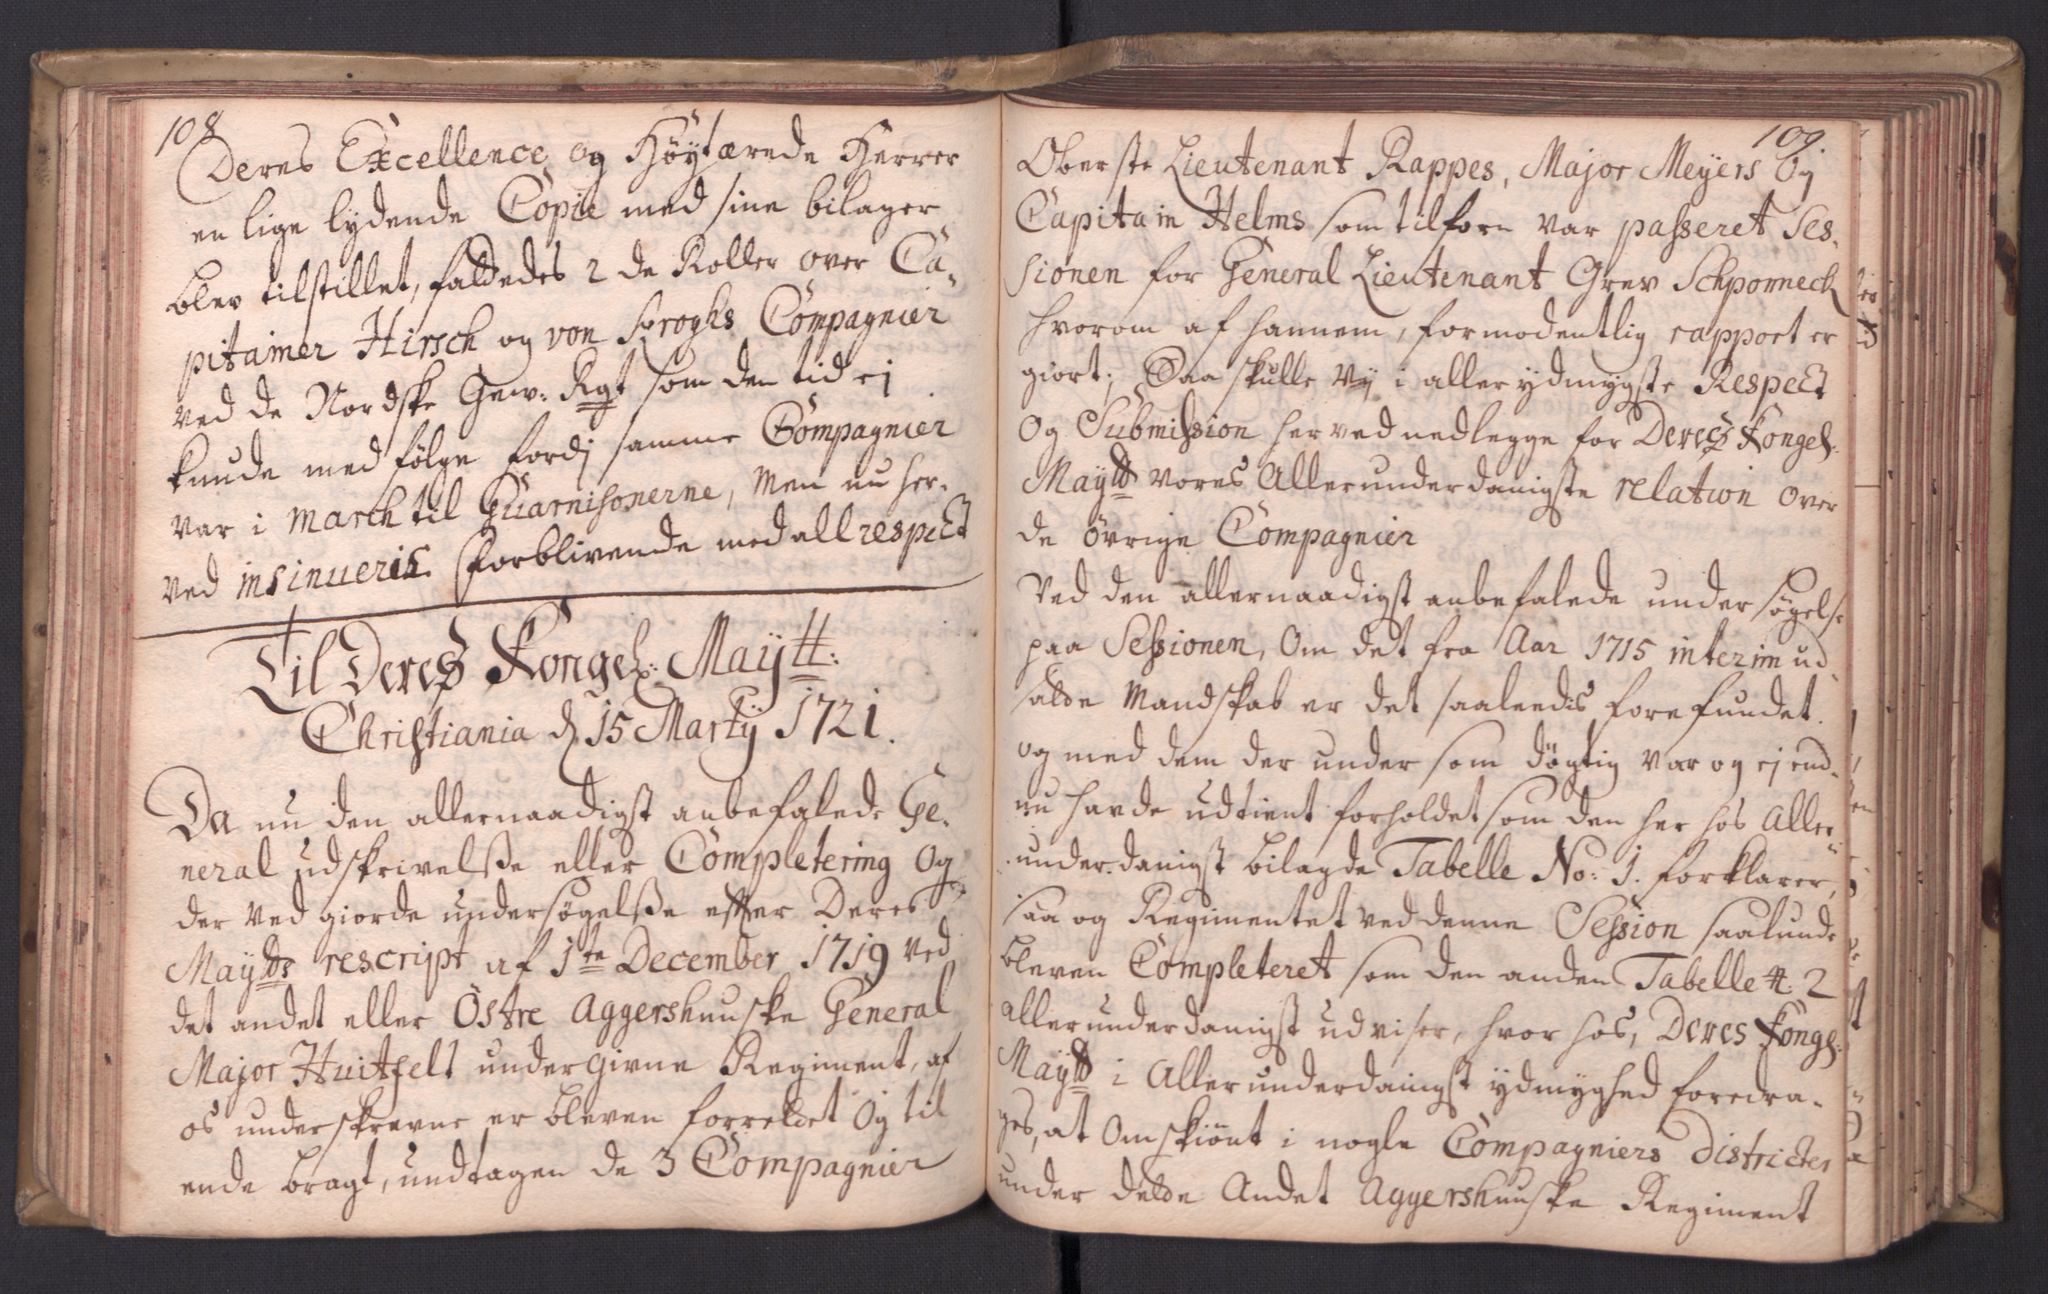 108
Deres Excellence og Höÿtærede Herrer
en lige lydende Copie med sine bilager
blev tilstillet, fattedes 2 de Roller over Ca-
pitainer Hirsch og von Kroghs Compagnier
ved de Nordske Gew: Rgt som den tid ej
kunde med følge fordj samme Compagnier
var i March til Guarnisonerne, Men nu her-
ved insinueris. forblivende med all respect
Til Deres Kongel: Maÿtt:
Christiania d 15 Martÿ 1721.
Da nu den allernaadigst anbefalede Ge-
neral udskrivelsse eller Completering Og
der ved giorde undersøgelsse efter Deres
Maytts rescript af 1te December 1719 ved
det andet eller Östre Aggershuuske General
Major Huitfelt undergivne Regiment, af
os underskrevne er bleven forrettet Og til
ende bragt, undtagen de 3 Compagnier
109.
Oberste Lieutenant Rappes, Major Meÿers Og
Capitain Helms som tilforn var passeret Ses-
sionen for General Lieutenant Grev Schponneck
hvorom af hannem, formodentlig rapport er
giort; Saa skulle Vÿ i aller ydmygste Respect
Og Submission herved nedlegge for Deres Kongel-
Maytt vores Allerunderdanigste relation over
de övrige Compagnier
Ved den allernaadigst anbefalede undersøgelse
paa Sessionen, Om det fra Aar 1715 interim ud-
satte Mandskab er det saaleedis forefundet
og med dem der under som døgtig var og ej end-
nu havde udtient forholdet som den her hos Aller-
underdanigst bilagde Tabelle No: 1. forklarer,
saa og Regimentet ved denne Session saalunde
bleven Completeret som den anden Tabelle 2
Allerunderdanigst udviser, hvor hos, Deres Kongel:
Maytt i Allerunderdanigst ydmyghed foredra-
ges, at Omskiönt i nogle Compagniers Districter
under dette Andet Aggershuuske Regiment